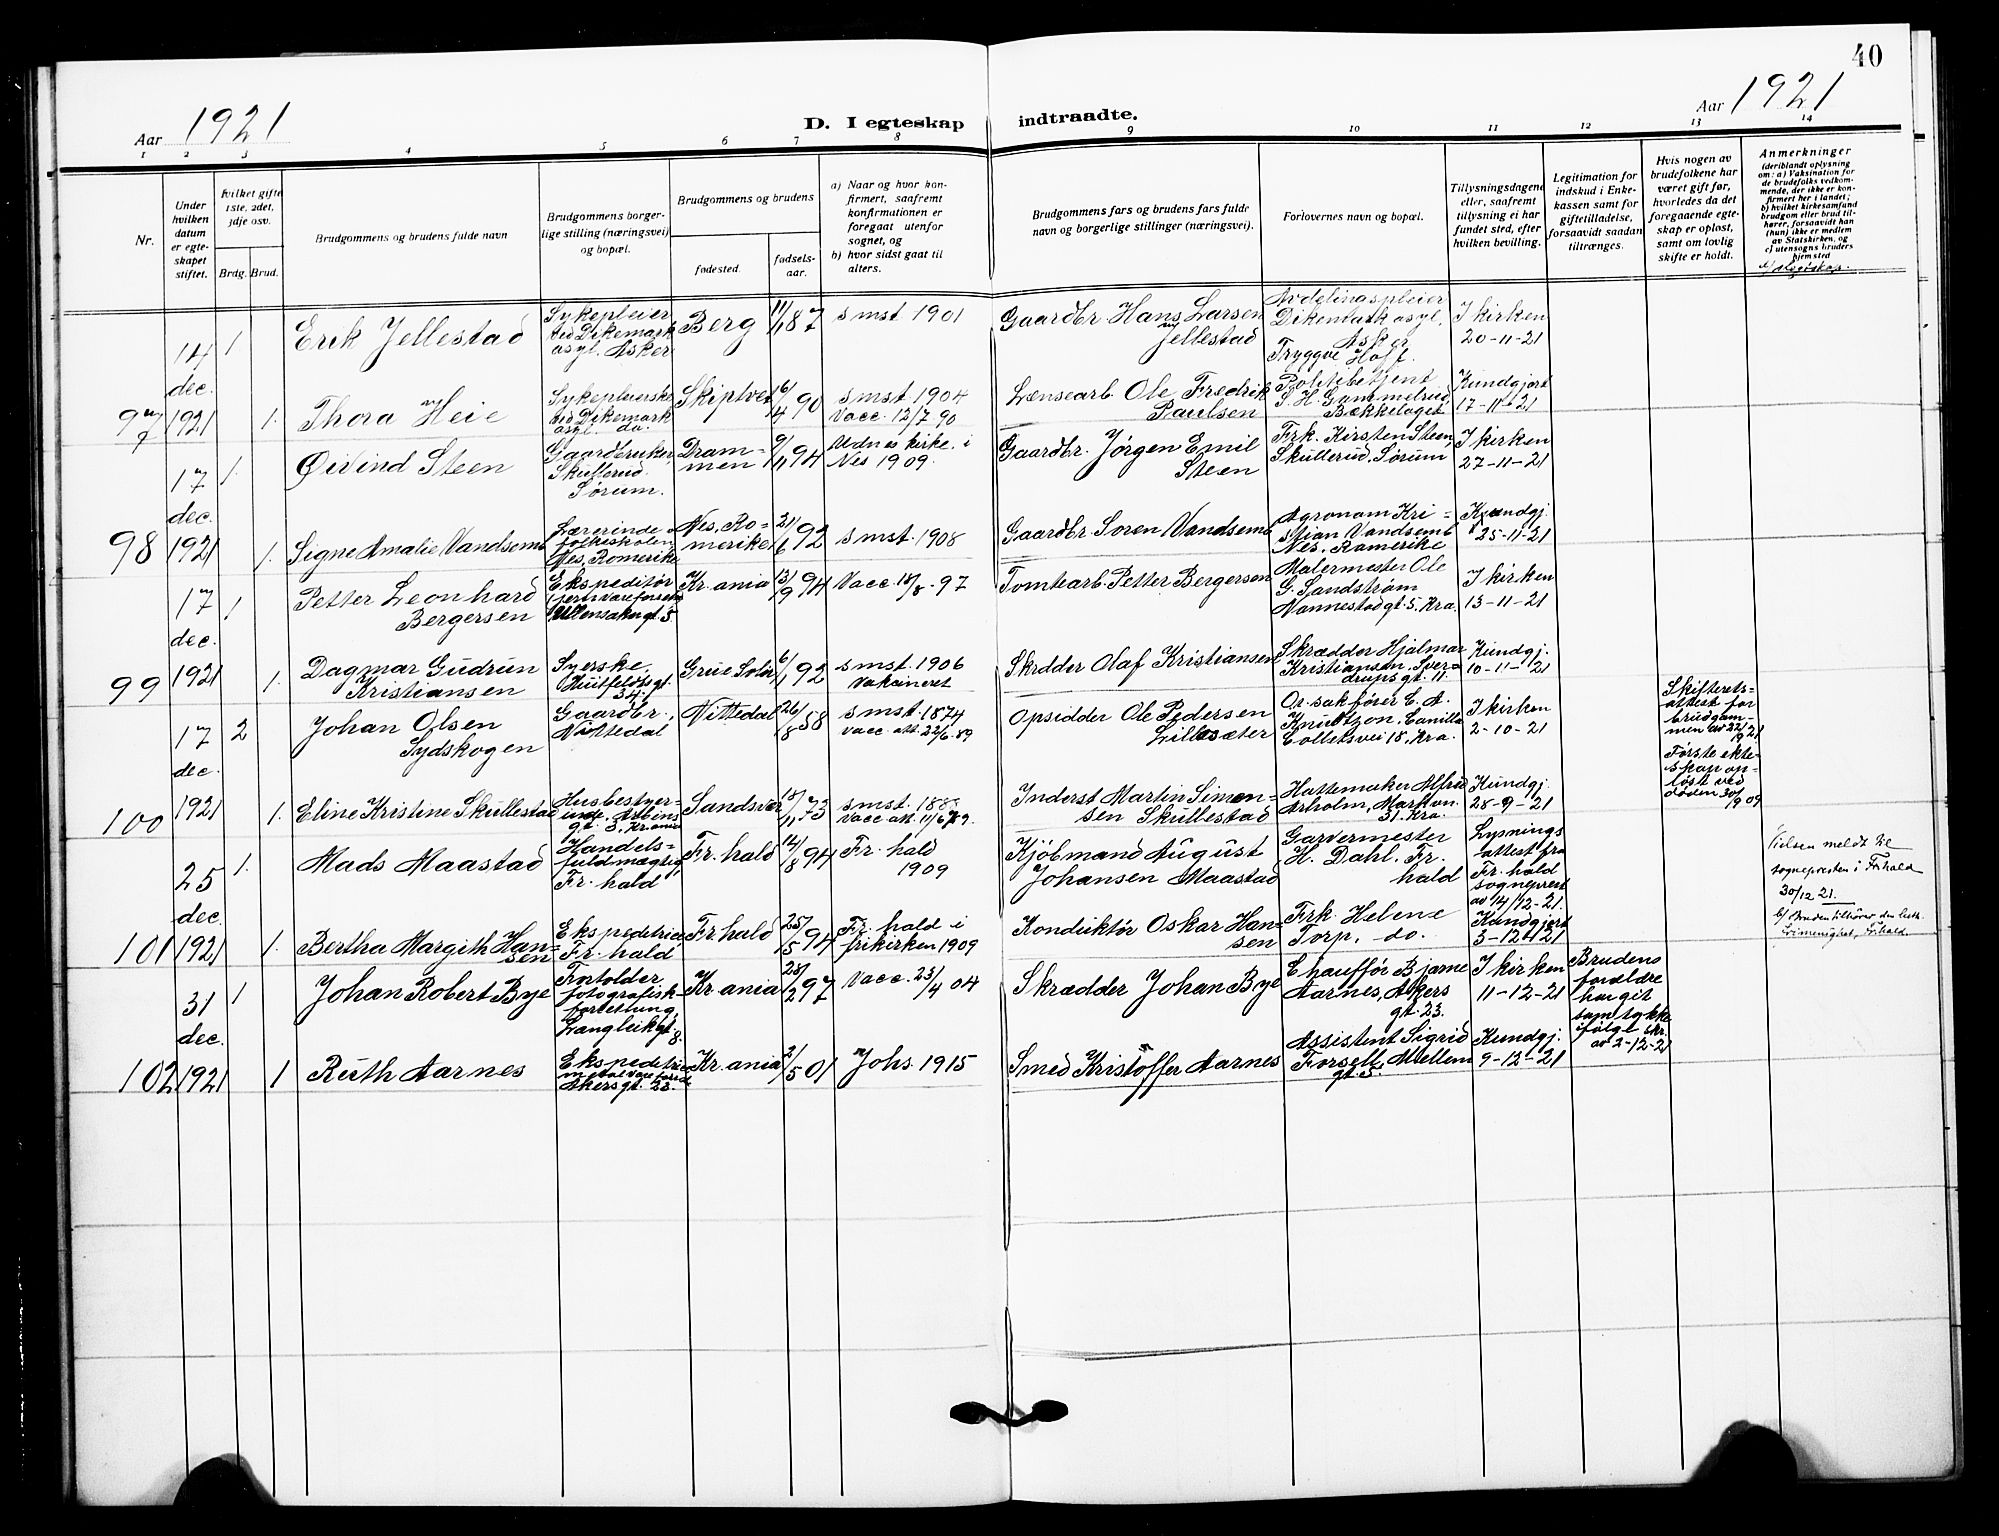 40
Aar 1921
D. I egteskap indtraadte.
Aar 1921
1 2 3 4 5 6 7 8 9 10 11 12 13 14
Nr.
Under hvilken datum er egteskapet stiftet.
hvilket gifte 1ste, 2det, 3dje osv.
Brdg. Brud.
Brudgommens og brudens fulde navn
Brudgommens borgerlige stilling (næringsvei) og bopæl.
Brudgommens og brudens
fødested.
fødselsaar.
a) Naar og hvor konfirmert, saafremt konfirmationen er foregaat utenfor sognet, og
b) hvor sidst gaat til alters.
Brudgommens fars og brudens fars fulde navn og borgerlige stillinger (næringsvei).
Forlovernes navn og bopæl.
Tillysningsdagene eller, saafremt tillysning ei har fundet sted, efter hvilken bevilling.
Legitimation for indskud i Enkekassen samt for giftetilladelse, forsaavidt saadan tiltrænges.
Hvis nogen av brudefolkene har været gift før, hvorledes da det foregaaende egteskap er opløst, samt om lovlig skifte er holdt.
Anmerkninger
(deriblandt oplysning om: a) Vaksination for de brudefolks vedkommende, der ikke er konfirmert her i landet;
b) hvilket kirkesamfund brudgom eller brud tilhører, forsaavidt han (hun) ikke er medlem av Statskirken, og
c) utensogns bruders hjemsted
14 dec. 1 Erik Jellestad
Sykepleier ved Dikemark asyl. Asker
Berg 11/11 87 smst 1901
Gaardbr Hans Larsen Jellestad
Avdelingspleier Dikemark asyl, Asker Tryggve Hoff.
I kirken 20-11-21
97 1921 1. Thora Heie
Sykepleierske ved Dikemark asyl. do.
Skiptvet 16/4 90 smst 1904 Vacc. 12/7 90
Lænsearb. Ole Fredrik Paulsen
Politibetjent S. H. Gammelsrud, Bækkelaget
Kundgjort 17-11-21
17 dec. 1. Øivind Steen
Gaardbruker, Skullerud. Sørum.
Drammen 9/11 94 Udnes kirke i Nes 1909.
Gaardbr. Jørgen Emil Steen
Frk. Kirsten Steen, Skullerud, Sørum
I kirken 27-11-21
98 1921 1. Signe Amalie Vandsemb
Lærerinde folkeskolen Nes, Romerike
Nes, Romerike 21/6 92 smst. 1908
Gaardbr Soren Vandsemb
Agronom Kristian Vandsemb Nes. Romerike
Kundgj. 25-11-21
17 dec. 1 Petter Leonhard Bergersen
Ekspeditør Ullensakergt. 5
Kr.ania 13/9 94 Vacc. 18/8-97
Tomtearb. Petter Bergersen
Malermester Ole G. Sandstrøm Nannestadgt. 5. Kra.
I kirken 13-11-21
99 1921 1. Dagmar Gudrun Kristiansen
Syerske, Huitfeldtsgt. 34.
Grue Solør 6/11 92 smst. 1906 Vaksineret
Skrdder Olaf Kristiansen
Skrædder Hjalmar Kristiansen. Sverdrups gt. 11.
Kundgj. 10-11-21
17 dec. 2 Johan Olsen Sydskogen
Gaardbr., Nittedal
Nittedal 26/8 58 smst. 1874 vacc. att. 22/6. 89
Opsidder Ole Pedersen Lillesæter
O.r.sakfører C. A. Knudtzon, Camilla Colletsvei 18, Kra.
I kirken 2-10-21
Skifteretsattest for brudgommen av 22/11 1921
Første ekteskap opløst ved døden 30/1 1909
100 1921 1. Eline Kristine Skullestad
Husbestyrerinde, Arbins gt. 3, Kr.ania
Sandsvær 18/11 73 smst. 188 Vacc. att.
Inderst Martin Simensen Skullestad
Hattemaker Alfred Arholm, Markvn. 31. Kra.
Kundgj. 28-9-21
25 dec. 1. Mads Maastad
Handelsfuldmægtig, Fr.hald
Fr. hald 14/8 94 Fr. hald 1909
Kjøbmand August Johansen Maastad
Garvermester H. Dahl. Fr.hald
Lysningsattest fra Fr. hald sogneprest av 14/12-21.
Vielsen meldt til sognepresten i Frhald 30/12 21.
101 1921 1. Bertha Margith Hansen
Ekspeditrice Fr. hald
Fr. hald 25/5 94 Fr. hald i frikirken 1909
Konduktør Oskar Hansen
Frk. Helene Torp, do.
Kundgjort 3-12-21
b) Bruden tilhører den luth. frimenighet, Frhald
31 dec. 1 Johan Robert Bye
Fortolder fotografiskforretlung, Langleikgt. 8.
Kr.ania 23/2 97 Vacc. 23/4 04
Skrædder Johan Bye
Chauffør Bjarne Aarnes, Akersgt. 23.
I kirken 11-12-21
Brudens forældre har git samtykke ifølge skr. av 2-12-21
102 1921 1 Ruth Aarnes
Ekspeditrice Akersgt. 23.
Kr.ania 2/5 01 Johs. 1915
Smed Kristoffer Aarnes
Assistent Sigrid Forsell. Mellemgt. 5.
Kundgj. 9-12-21